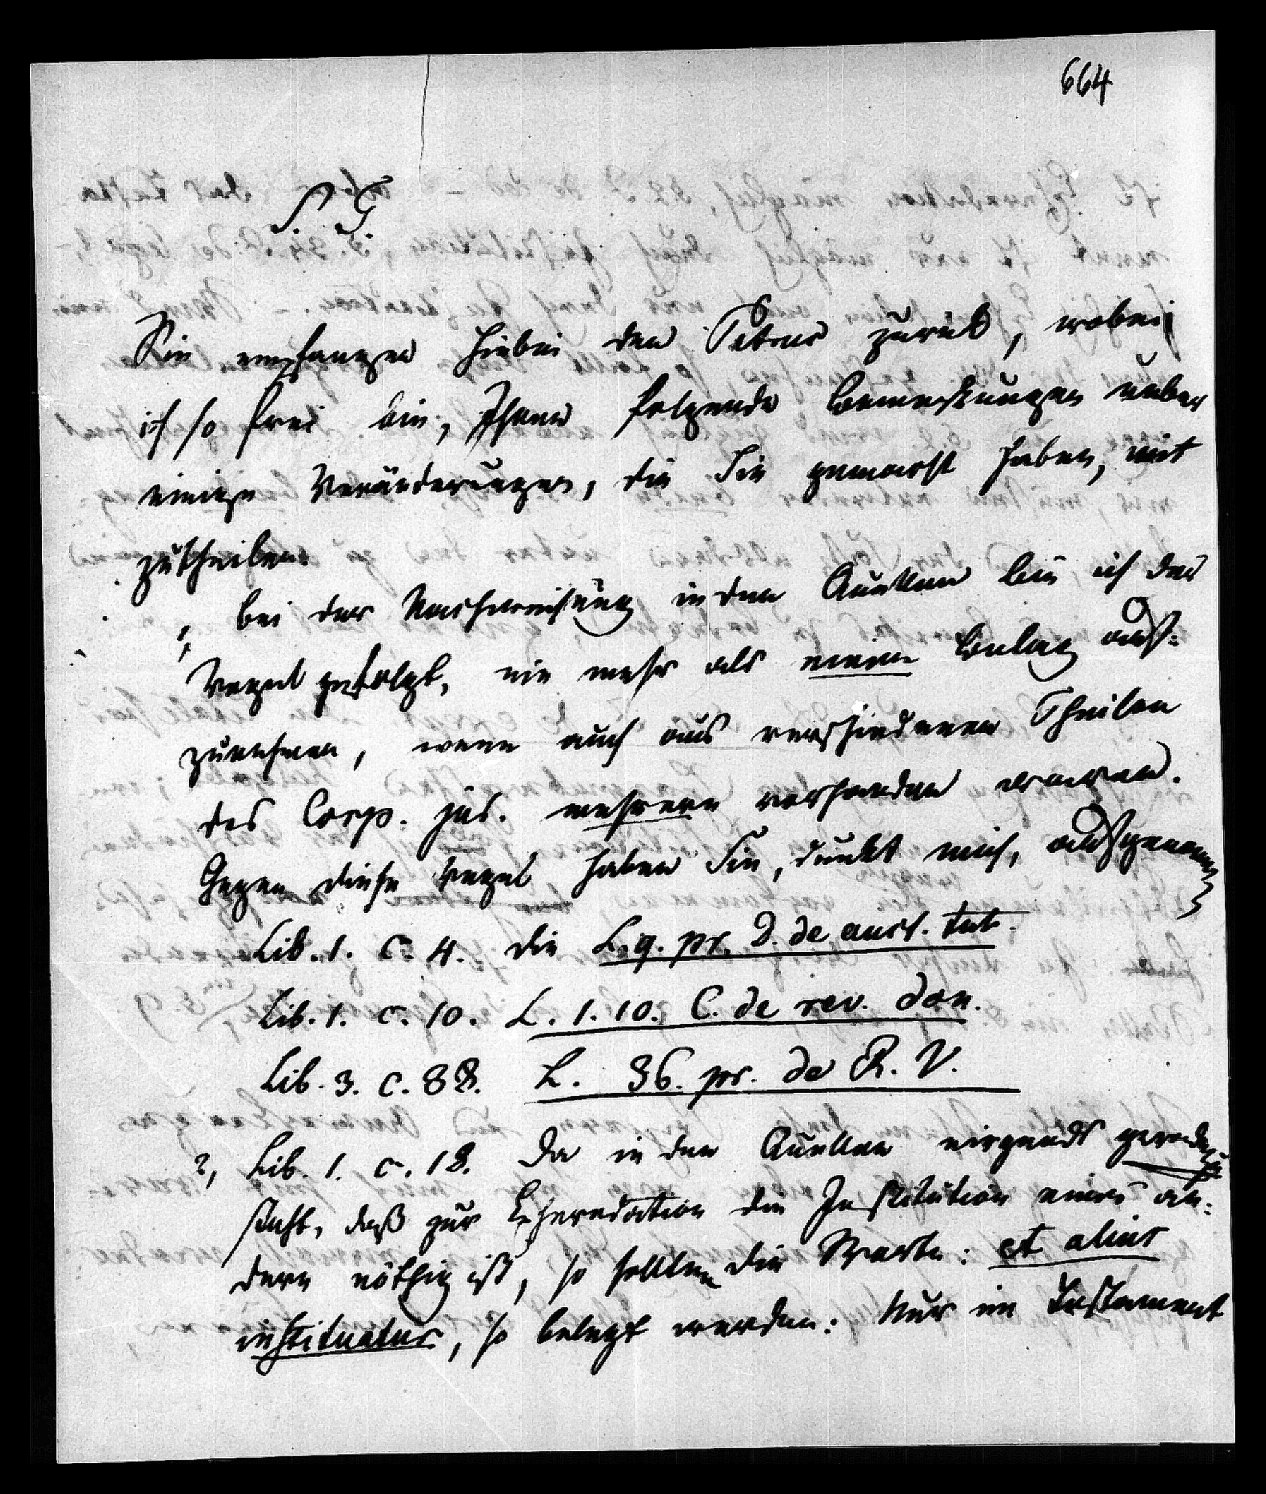 664
S. G.
Sie empfangen hiebei den Petrus zurück, wobei
ich so frei bin, Ihnen folgende Bemerkungen ueber
einige Veränderungen, die Sie gemacht haben, mit
zutheilen
1, bei der Nachweisung in den Quellen bin ich der
Regel gefolgt, nie mehr als einen Beleg auf¬
zunehmen, wenn auch aus verschiedenen Theilen
des Corp. jur. mehrere vorhanden waren.
Gegen diese Regel haben Sie, dünkt mich, aufgenommen
Lib. 1. c. 4. die L. 9. pr. D. de auct. tut.
Lib. 1. c. 10. L. 1. 10. C. de rev. don.
Lib. 3. c. 88. L. 36. pr. de R. V.
2, Lib. 1. c. 18. Da in den Quellen nirgends geradezu
steht, daß zur Exheredation die Institution eines an¬
dern nöthig ist, so sollten die Worte: et alius
instituatur, so belegt werden: Nur im Testament